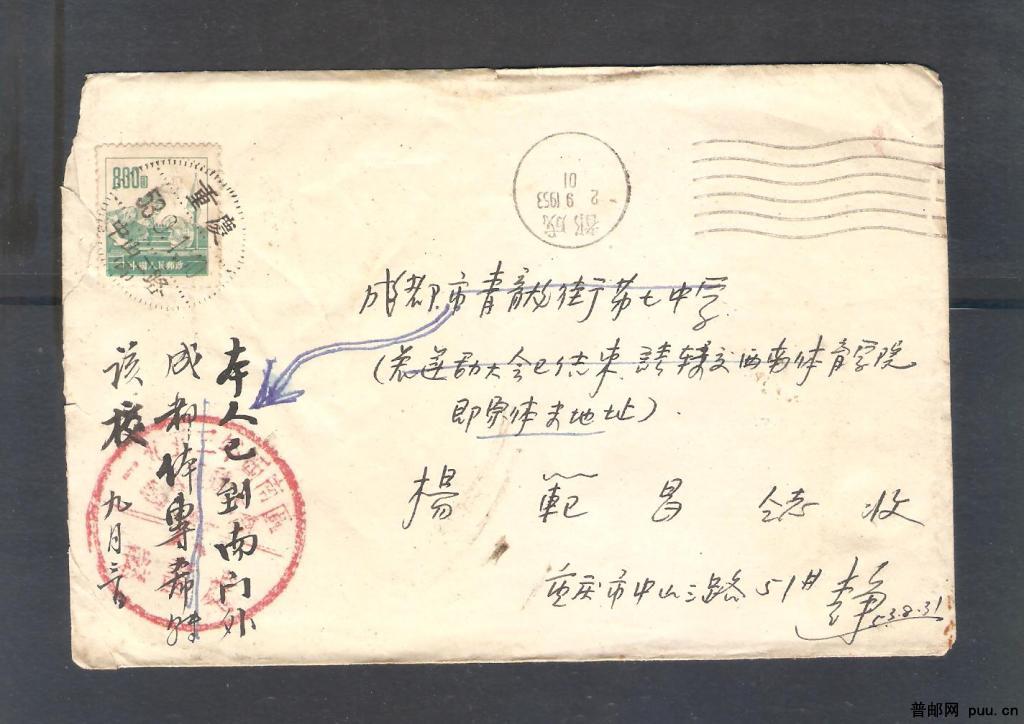 800
中国人民邮政
重慶
53
中山路
成都
2 9 1953
01
成都市青龙街第七中学
(若运动大会已结束,請转交西南体育学院
即原体专地址).
楊範昌 仝志 收
重庆市中山三路51#
53.8.31
本人已到南门外
成都体專希转
该校
九月三日
普邮网 puu.cn